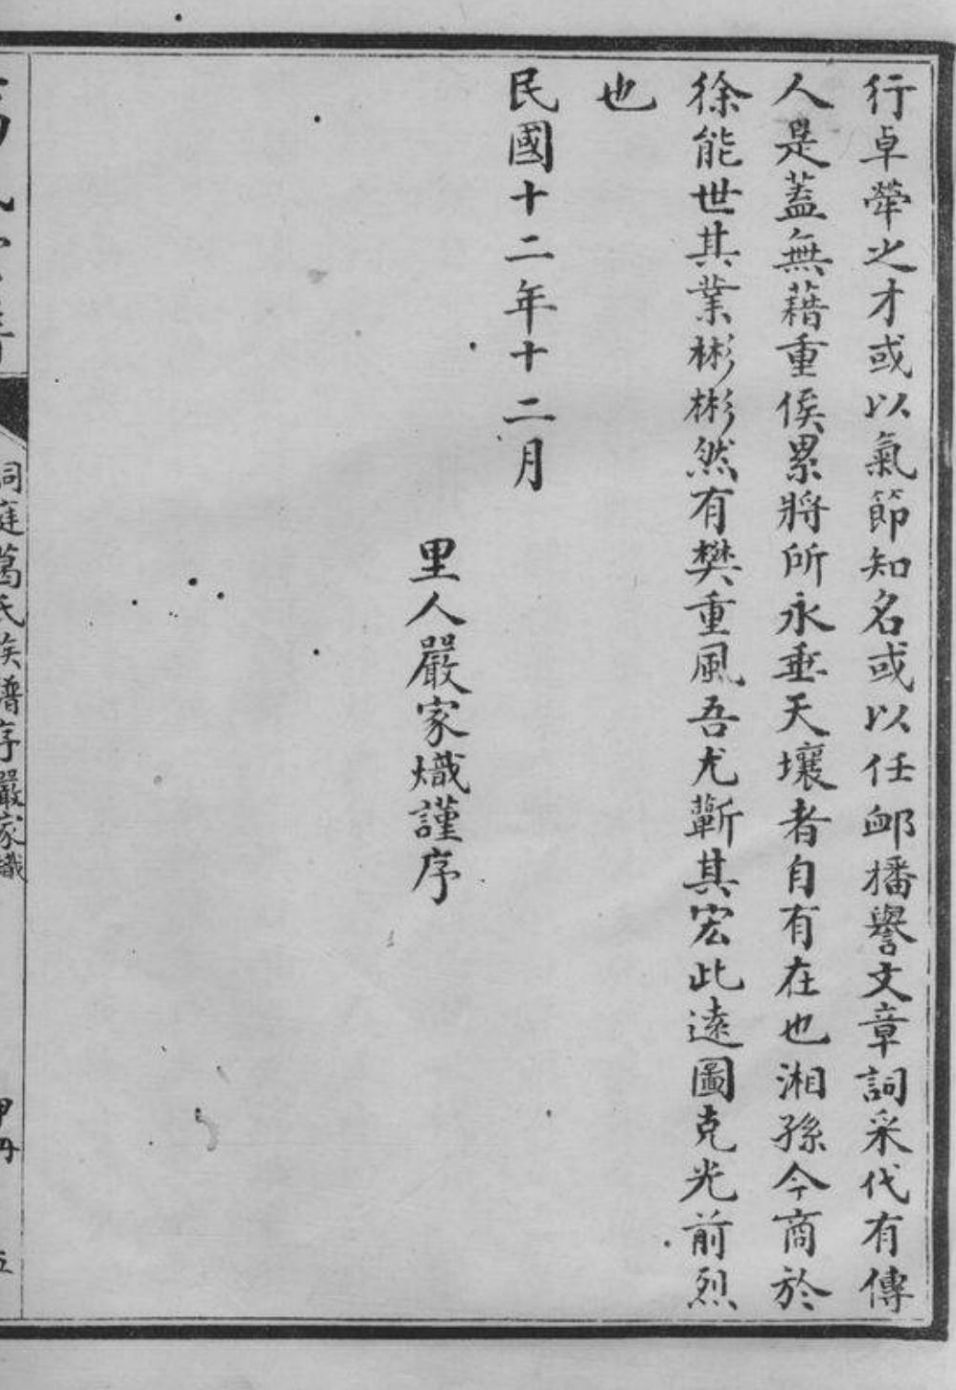 行卓犖之才或以氣節知名或以任卹播譽文章詞采代有傳
人是蓋無藉重侯累將所永垂天壤者自有在也湘孫今商於
徐能世其業彬彬然有樊重風吾尤蘄其宏此遠圖克光前烈
也
民國十二年十二月
里人嚴家熾謹序
洞庭葛氏族譜序嚴家熾
甲丹
五